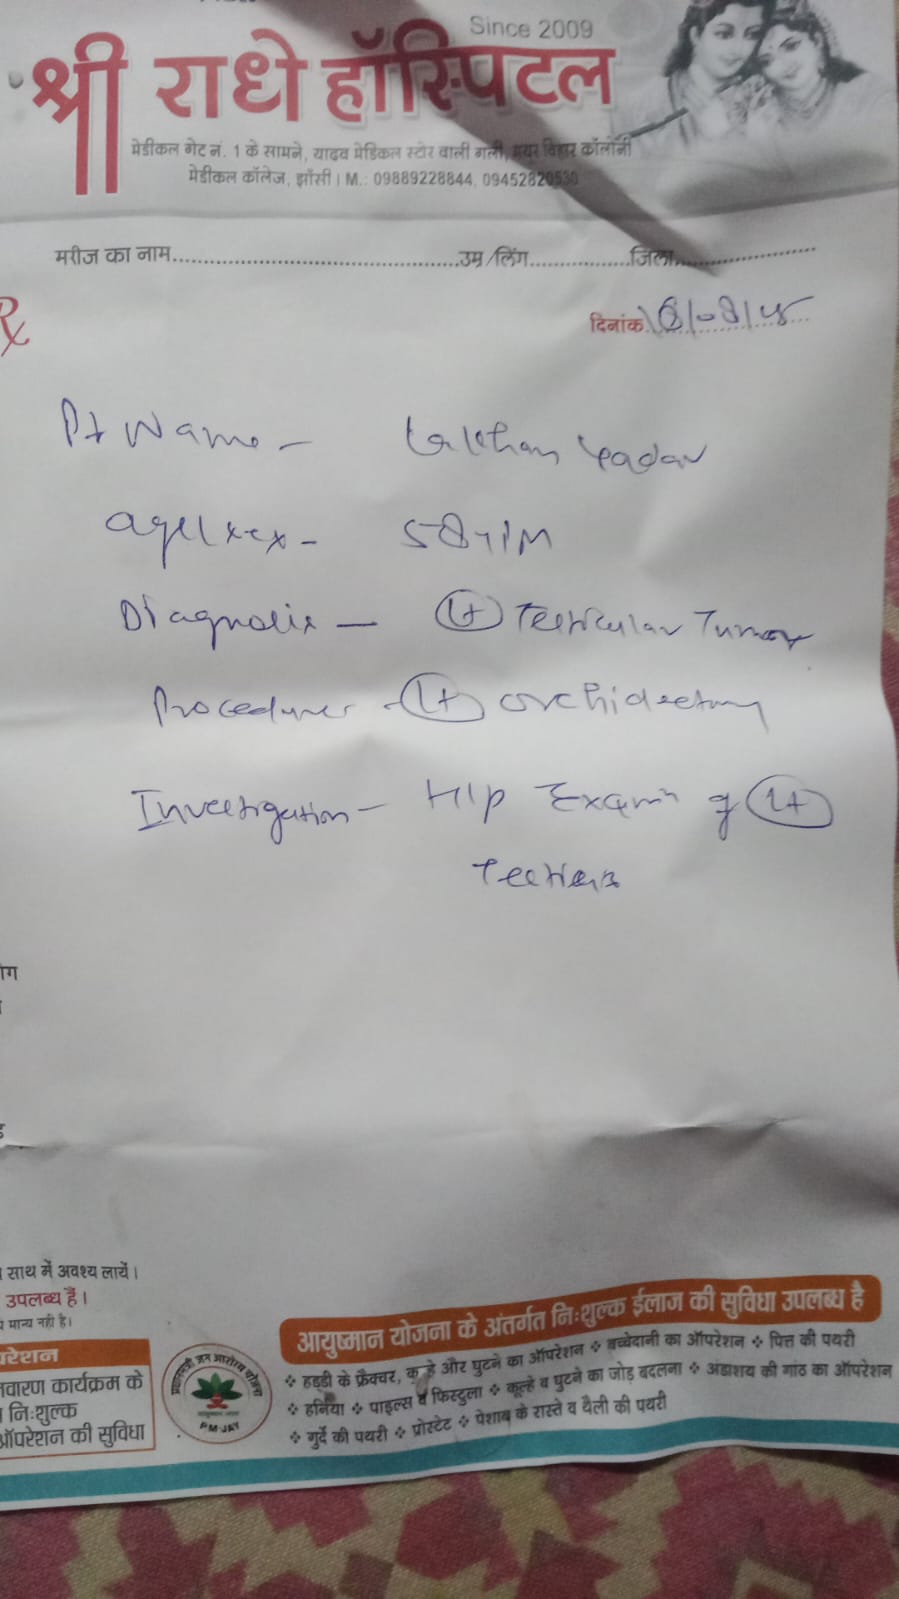 Since 2009
श्री राधे हॉस्पिटल
मेडीकल गेट नं. 1 के सामने, यादव मेडिकल स्टोर वाली गली, मयूर विहार कॉलोनी
मेडीकल कॉलेज, झाँसी। M.: 09889228844, 09452820530
मरीज का नाम........................................उम्र/लिंग.................जिला.......................
Rx
दिनांक
Pt Name - Lakhan Yadav
age/sex - 58y/M
Diagnosis - Lt Testicular Tumor
Procedure - Lt orchidectomy
Investigation - H/p Exam of Lt
Testers
साथ में अवश्य लायें।
उपलब्ध हैं।
मान्य नही है।
आयुष्मान योजना के अंतर्गत निःशुल्क ईलाज की सुविधा उपलब्ध है
❖ हड्डी के फ्रैक्चर, कूल्हे और घुटने का ऑपरेशन ❖ बच्चेदानी का ऑपरेशन ❖ पित्त की पथरी
❖ हर्निया ❖ पाइल्स व फिस्टुला ❖ कूल्हे व घुटने का जोड़ बदलना ❖ अंडाशय की गांठ का ऑपरेशन
❖ गुर्दे की पथरी ❖ प्रोस्टेट ❖ पेशाब के रास्ते व थैली की पथरी
परेशन
नवारण कार्यक्रम के
निःशुल्क
ऑपरेशन की सुविधा
प्रधानमंत्री जन आरोग्य योजना
PM-JAY